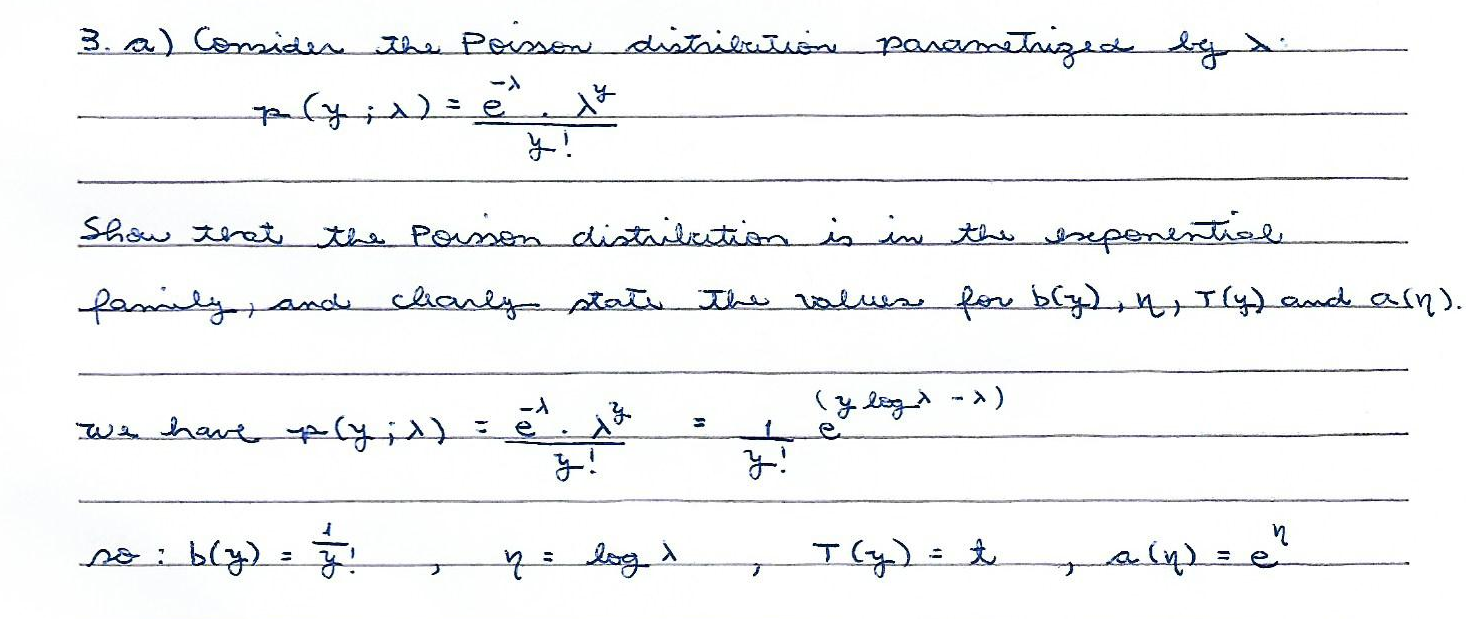 3. a) Consider the Poisson distribution parametrized by λ:
p(y;λ) = e^{-λ} . λ^y / y!
Show that the Poisson distribution is in the exponential
family, and clearly state the values for b(y), η, T(y) and a(η).
we have p(y;λ) = e^{-λ} . λ^y / y! = 1/y! e^{(y log λ - λ)}
so : b(y) = 1/y! , η = log λ , T(y) = t , a(η) = e^η